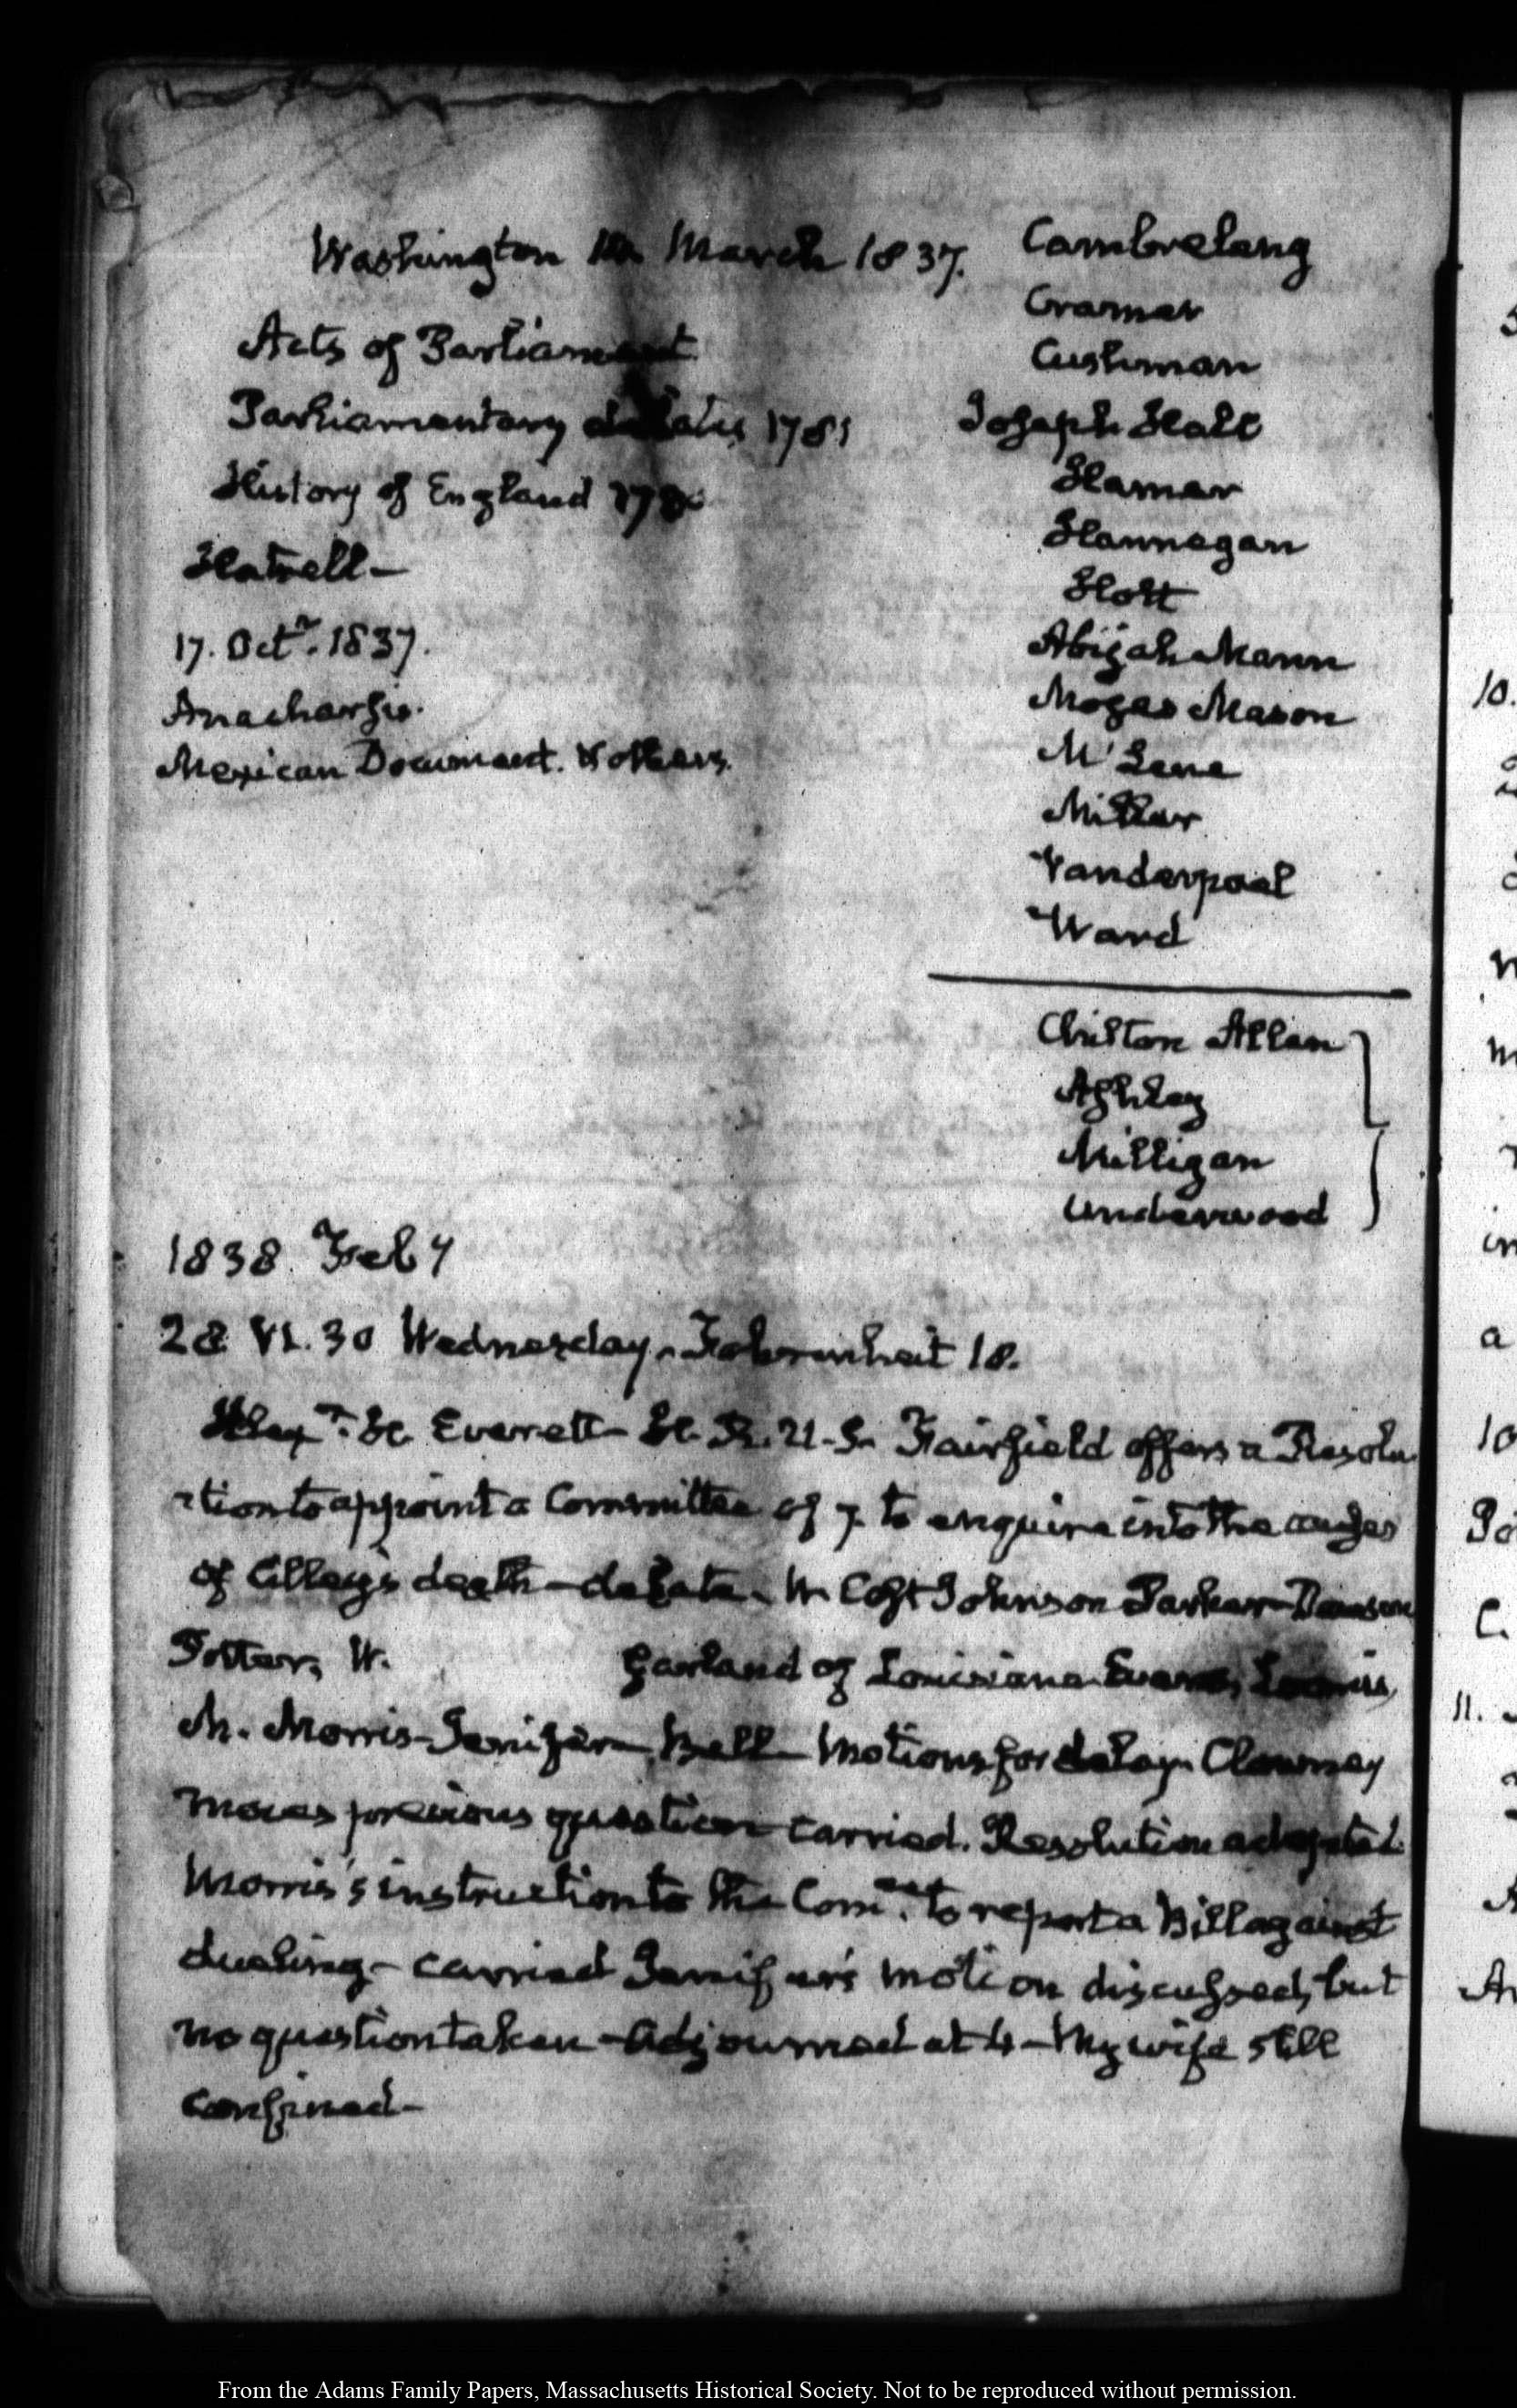 Washington March 1837.
Acts of Parliament
Parliamentary debates 1781
History of England
Hatsell—
17. Octr. 1837.
Anacharsis.
Mexican Document. & others.
Cambreleng
Cramer
Cushman
Joseph Hall
Hamer
Hannegan
Holt
Abijah Mann
Moses Mason
McLene
Miller
Vanderpoel
Ward
Chilton Allan
Ashley
Milligan
Underwood
1838. Feby
28. VI. 30 Wednesday. Fahrenheit 18.
Alexr. H. Everett— H. R. U.S. Fairfield offers a Resolu
-tion to appoint a Committee of 7 to enquire into the causes
of Cilley's death—debate. W. Cost Johnson Parker—Dawson
Potter, W. Garland of Louisiana Evans, Loomis,
M. Morris—Jenifer—Bell— Motions for delay. Clowney
moves previous question carried. Resolution adopted.
Morris's instruction to the Comee. to report a Bill against
dueling—carried Jenifer's motion discussed, but
no question taken—Adjourned at 4—My wife still
confined—
From the Adams Family Papers, Massachusetts Historical Society. Not to be reproduced without permission.